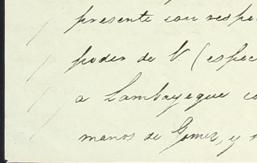 presente con respe
poder de V (espec
a Lambayeque co
manos de Gomez, y